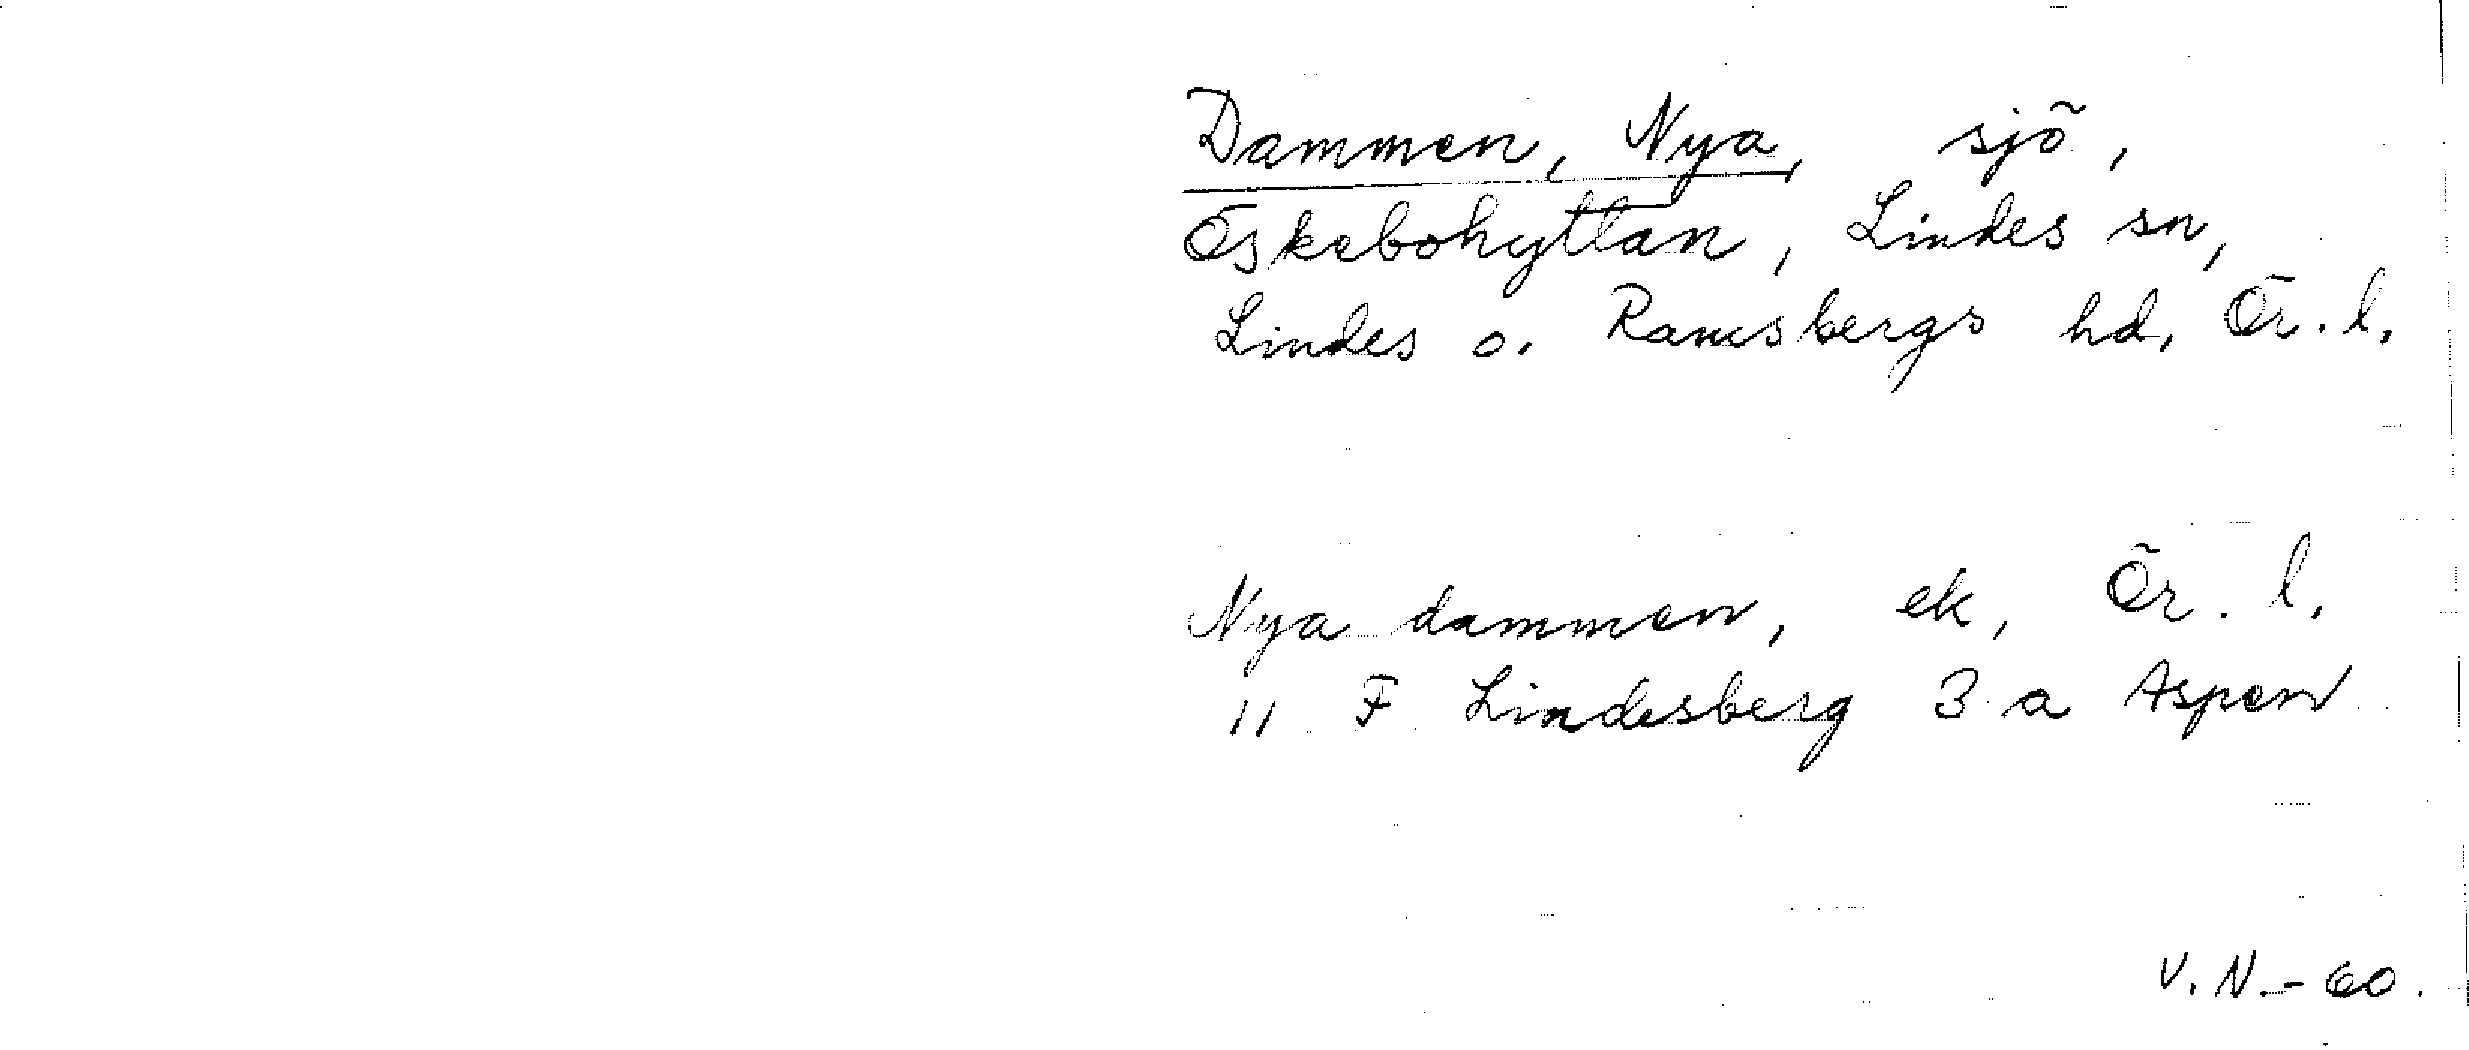 Dammen, Nya, sjö,
Öskebohyttan, Lindes sn,
Lindes o. Ramsbergs hd, Ör. l.
Nya dammen, ek, Ör. l.
11 F Lindesberg 3 a Aspen
V. N. - 60.